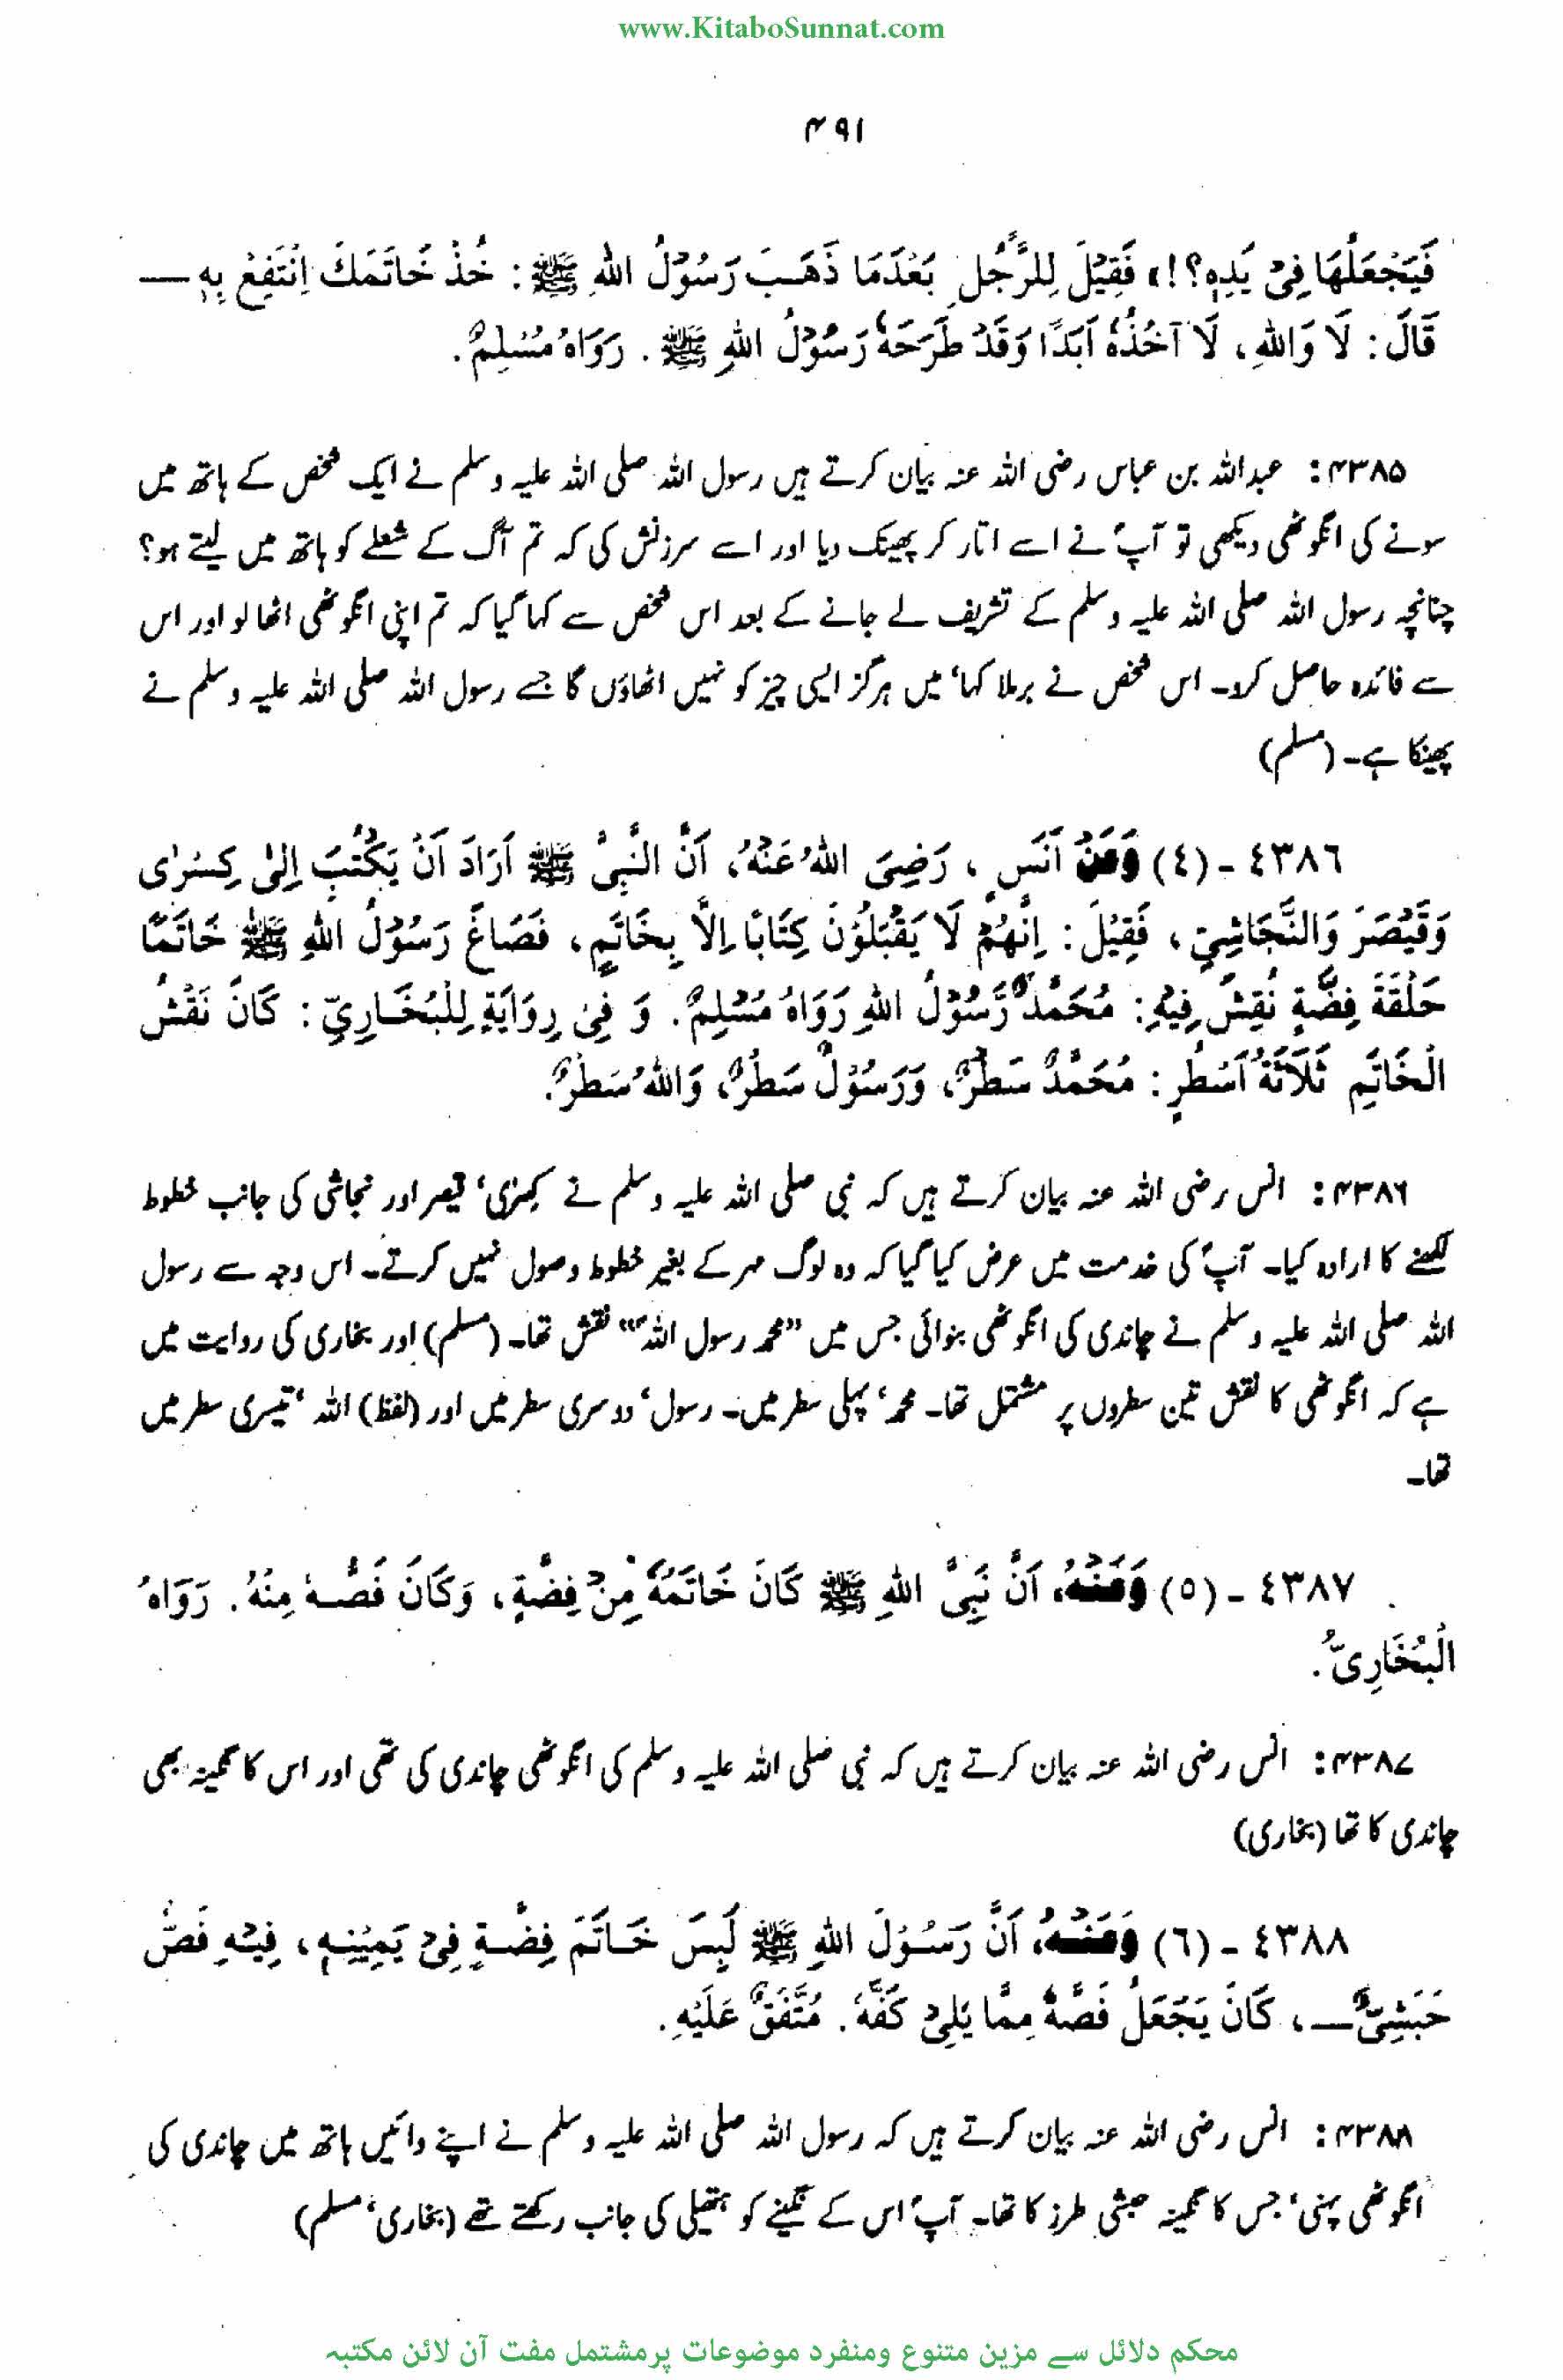 www.KitaboSunnat.com
۴۹۱
فَيَجْعَلُهَا فِيْ يَدِهٖ؟!» فَقِيْلَ لِلرَّجُلِ بَعْدَمَا ذَهَبَ رَسُوْلُ اللهِ ﷺ: خُذْ خَاتَمَكَ اِنْتَفِعْ بِهٖ ــ
قَالَ: لَا وَاللهِ، لَا آخُذُهٗ اَبَدًا وَقَدْ طَرَحَهٗ رَسُوْلُ اللهِ ﷺ. رَوَاهُ مُسْلِمٌ.
۴۳۸۵: عبداللہ بن عباس رضی اللہ عنہ بیان کرتے ہیں رسول اللہ صلی اللہ علیہ وسلم نے ایک شخص کے ہاتھ میں
سونے کی انگوٹھی دیکھی تو آپؐ نے اسے اتار کر پھینک دیا اور اسے سرزنش کی کہ تم آگ کے شعلے کو ہاتھ میں لیتے ہو؟
چنانچہ رسول اللہ صلی اللہ علیہ وسلم کے تشریف لے جانے کے بعد اس شخص سے کہا گیا کہ تم اپنی انگوٹھی اٹھا لو اور اس
سے فائدہ حاصل کرو۔ اس شخص نے برملا کہا، میں ہرگز ایسی چیز کو نہیں اٹھاؤں گا جسے رسول اللہ صلی اللہ علیہ وسلم نے
پھینکا ہے۔ (مسلم)
٤٣٨٦ - (٤) وَعَنْ اَنَسٍ، رَضِيَ اللهُ عَنْهُ، اَنَّ النَّبِيَّ ﷺ اَرَادَ اَنْ يَكْتُبَ اِلىٰ كِسْرٰى
وَقَيْصَرَ وَالنَّجَاشِيِّ، فَقِيْلَ: اِنَّهُمْ لَا يَقْبَلُوْنَ كِتَابًا اِلاَّ بِخَاتَمٍ، فَصَاغَ رَسُوْلُ اللهِ ﷺ خَاتَمًا
حَلْقَةَ فِضَّةٍ نُقِشَ فِيْهِ: مُحَمَّدٌ رَّسُوْلُ اللهِ رَوَاهُ مُسْلِمٌ. وَ فِيْ رِوَايَةٍ لِلْبُخَارِيِّ: كَانَ نَقْشُ
الْخَاتَمِ ثَلَاثَةُ اَسْطُرٍ: مُحَمَّدٌ سَطْرٌ، وَرَسُوْلٌ سَطْرٌ، وَاللهُ سَطْرٌ.
۴۳۸۶: انس رضی اللہ عنہ بیان کرتے ہیں کہ نبی صلی اللہ علیہ وسلم نے کسرٰی، قیصر اور نجاشی کی جانب خطوط
لکھنے کا ارادہ کیا۔ آپؐ کی خدمت میں عرض کیا گیا کہ وہ لوگ مہر کے بغیر خطوط وصول نہیں کرتے۔ اس وجہ سے رسول
اللہ صلی اللہ علیہ وسلم نے چاندی کی انگوٹھی بنوائی جس میں "محمد رسول اللہ" نقش تھا۔ (مسلم) اور بخاری کی روایت میں
ہے کہ انگوٹھی کا نقش تین سطروں پر مشتمل تھا۔ محمد، پہلی سطر میں۔ رسول، دوسری سطر میں اور (لفظ) اللہ، تیسری سطر میں
تھا۔
٤٣٨٧ - (٥) وَعَنْهُ، اَنَّ نَبِيَّ اللهِ ﷺ كَانَ خَاتَمُهٗ مِنْ فِضَّةٍ، وَكَانَ فَصُّهٗ مِنْهُ. رَوَاهُ
الْبُخَارِيُّ.
۴۳۸۷: انس رضی اللہ عنہ بیان کرتے ہیں کہ نبی صلی اللہ علیہ وسلم کی انگوٹھی چاندی کی تھی اور اس کا نگینہ بھی
چاندی کا تھا (بخاری)
٤٣٨٨ - (٦) وَعَنْهُ، اَنَّ رَسُوْلَ اللهِ ﷺ لَبِسَ خَاتَمَ فِضَّةٍ فِيْ يَمِيْنِهٖ، فِيْهِ فَصٌّ
حَبَشِيٌّ ــ، كَانَ يَجْعَلُ فَصَّهٗ مِمَّا يَلِيْ كَفَّهٗ. مُتَّفَقٌ عَلَيْهِ.
۴۳۸۸: انس رضی اللہ عنہ بیان کرتے ہیں کہ رسول اللہ صلی اللہ علیہ وسلم نے اپنے دائیں ہاتھ میں چاندی کی
انگوٹھی پہنی، جس کا نگینہ حبشی طرز کا تھا۔ آپؐ اس کے نگینے کو ہتھیلی کی جانب رکھتے تھے (بخاری، مسلم)
محکم دلائل سے مزین متنوع ومنفرد موضوعات پر مشتمل مفت آن لائن مکتبہ